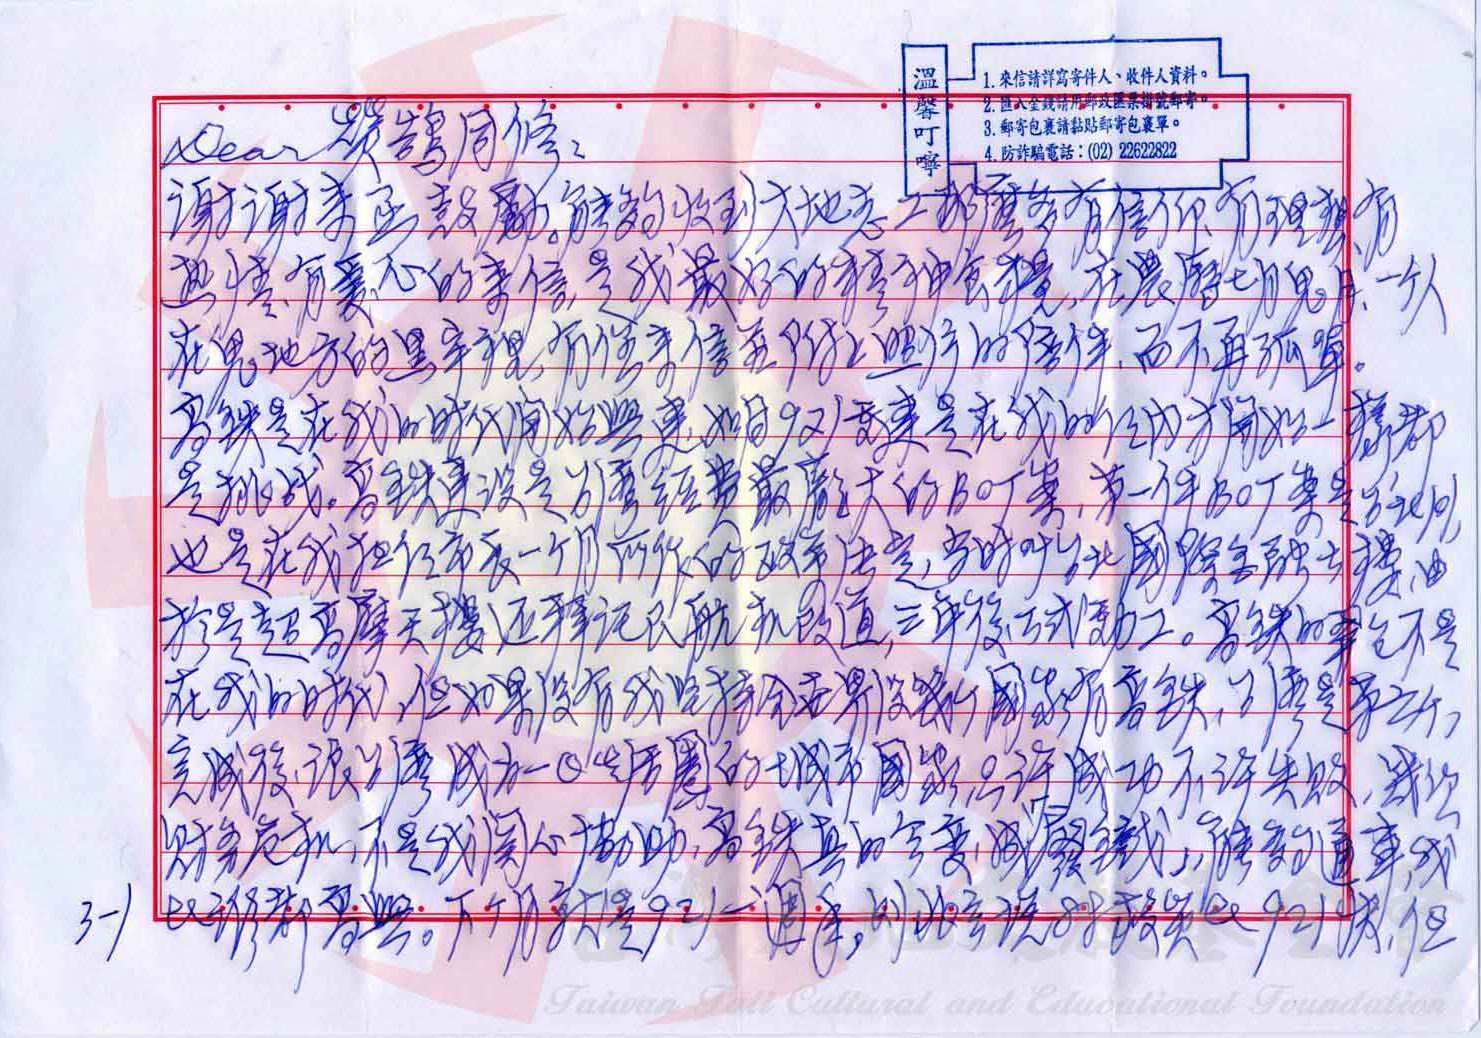 溫馨叮嚀
1. 來信請詳寫寄件人、收件人資料。
2. 匯入金錢請用郵政匯票掛號郵寄。
3. 郵寄包裹請黏貼郵寄包裹單。
4. 防詐騙電話：(02) 22622822
Dear 同修：
謝謝來函鼓勵。能夠收到大地志工那麼多有信仰、有理想、有
熱情、有愛心的來信，是我最好的精神食糧，在農曆七月鬼月，一個人
在鬼地方的黑牢裡，有你來信並附上照片的陪伴，而不再孤單。
高鐵是在我的時代開始興建，如同921重建是在我的任內才開始一樣都
是挑戰。高鐵建設是台灣經費最龐大的BOT案，第一件BOT案是台北101，
也是在我担任市長一個月所作的政策決定，當時叫台北國際金融大樓，由
於是超高摩天樓还釋民航机改道，三年後正式動工。高鐵的 不是
在我的時代，但如果沒有我 全世界沒幾個國家有高鐵，台灣是第 個，
完成後，讓台灣成為一日生活圈的城市國家，只許成功不許失敗，
財務危机，不是我関心協助，高鐵真的會變成「廢鐵」，能夠通車，我
比誰都高興。下個月就是921 週年， 救災比921快，但
3-1
Taiwan Tati Cultural and Educational Foundation